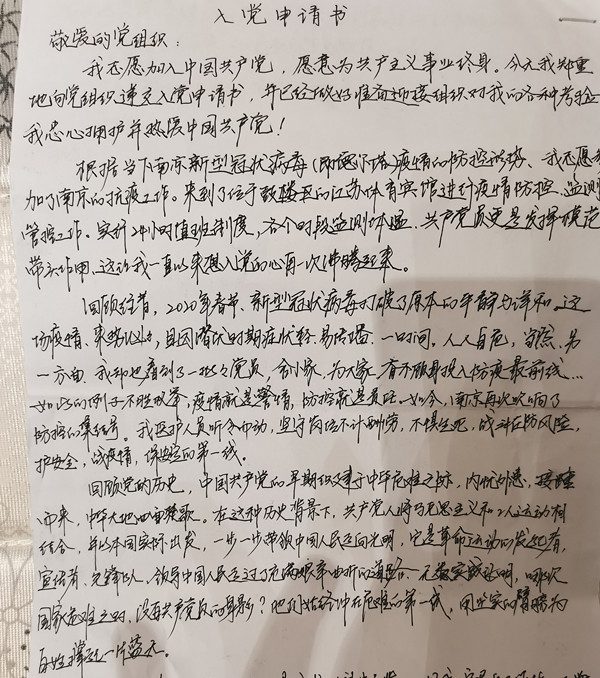 入党申请书
敬爱的党组织:
我志愿加入中国共产党,愿意为共产主义事业终身。今天我郑重
地向党组织递交入党申请书,并已经做好准备迎接组织对我的各种考验
我忠心拥护并热爱中国共产党!
根据当下南京新型冠状病毒(即德尔塔)疫情的防控形势、我志愿参
加了南京的抗疫工作。来到了位于鼓楼区的江苏体育宾馆进行疫情防控、监测
管控工作。实行24小时值班制度,各个时段监测体温、共产党员更是发挥模范
带头作用、这让我一直以来想入党的心再一次沸腾起来。
回顾往昔,2020年春节、新型冠状病毒打破了原本的平静与祥和、这
场疫情、来势汹汹,且因潜伏时期症状轻、易传播、一时间,人人自危,当然、另
一方面、我却也看到了一批党员,舍小家、为大家、奋不顾身投入防疫最前线…
如此的例子不胜枚举,疫情就是警情,防控就是责任。如今,南京再次吹响了
防控的集结号。我医护人员听令而动,坚守岗位不计酬劳,不惧生死,战斗在防风险,
护安全,战疫情,保稳定的第一线。
回顾党的历史,中国共产党的早期组织建于中华危难之际,内忧外患、接踵
而来,中华大地四面楚歌。在这种历史背景下,共产党人将马克思主义和工人运动相
结合,并从本国实际出发,一步一步带领中国人民走向光明,它是革命运动的发起者,
宣传者、先锋队、领导中国人民走过了充满艰辛曲折的道路。无数实践证明,哪次
国家危难之时、没有共产党员的身影?他们始终冲在危难的第一线,用坚实的臂膀为
百姓撑起一片蓝天。